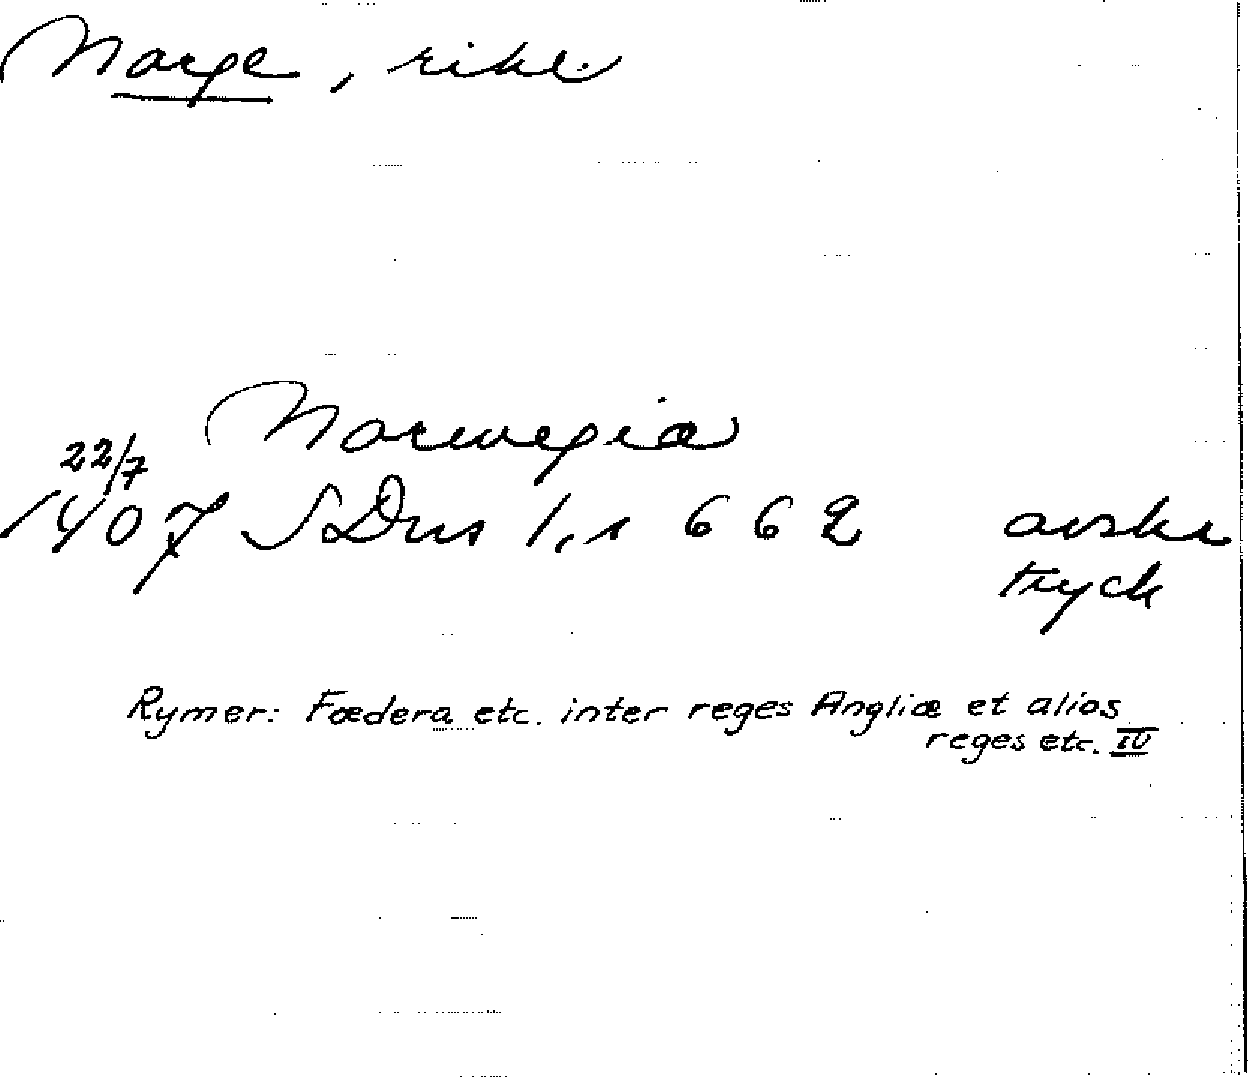 Norge, rike
Norwegia
22/7
1407 SDns 1,1 662 avskr
tryck
Rymer: Fœdera etc. inter reges Angliæ et alios
reges etc. IV